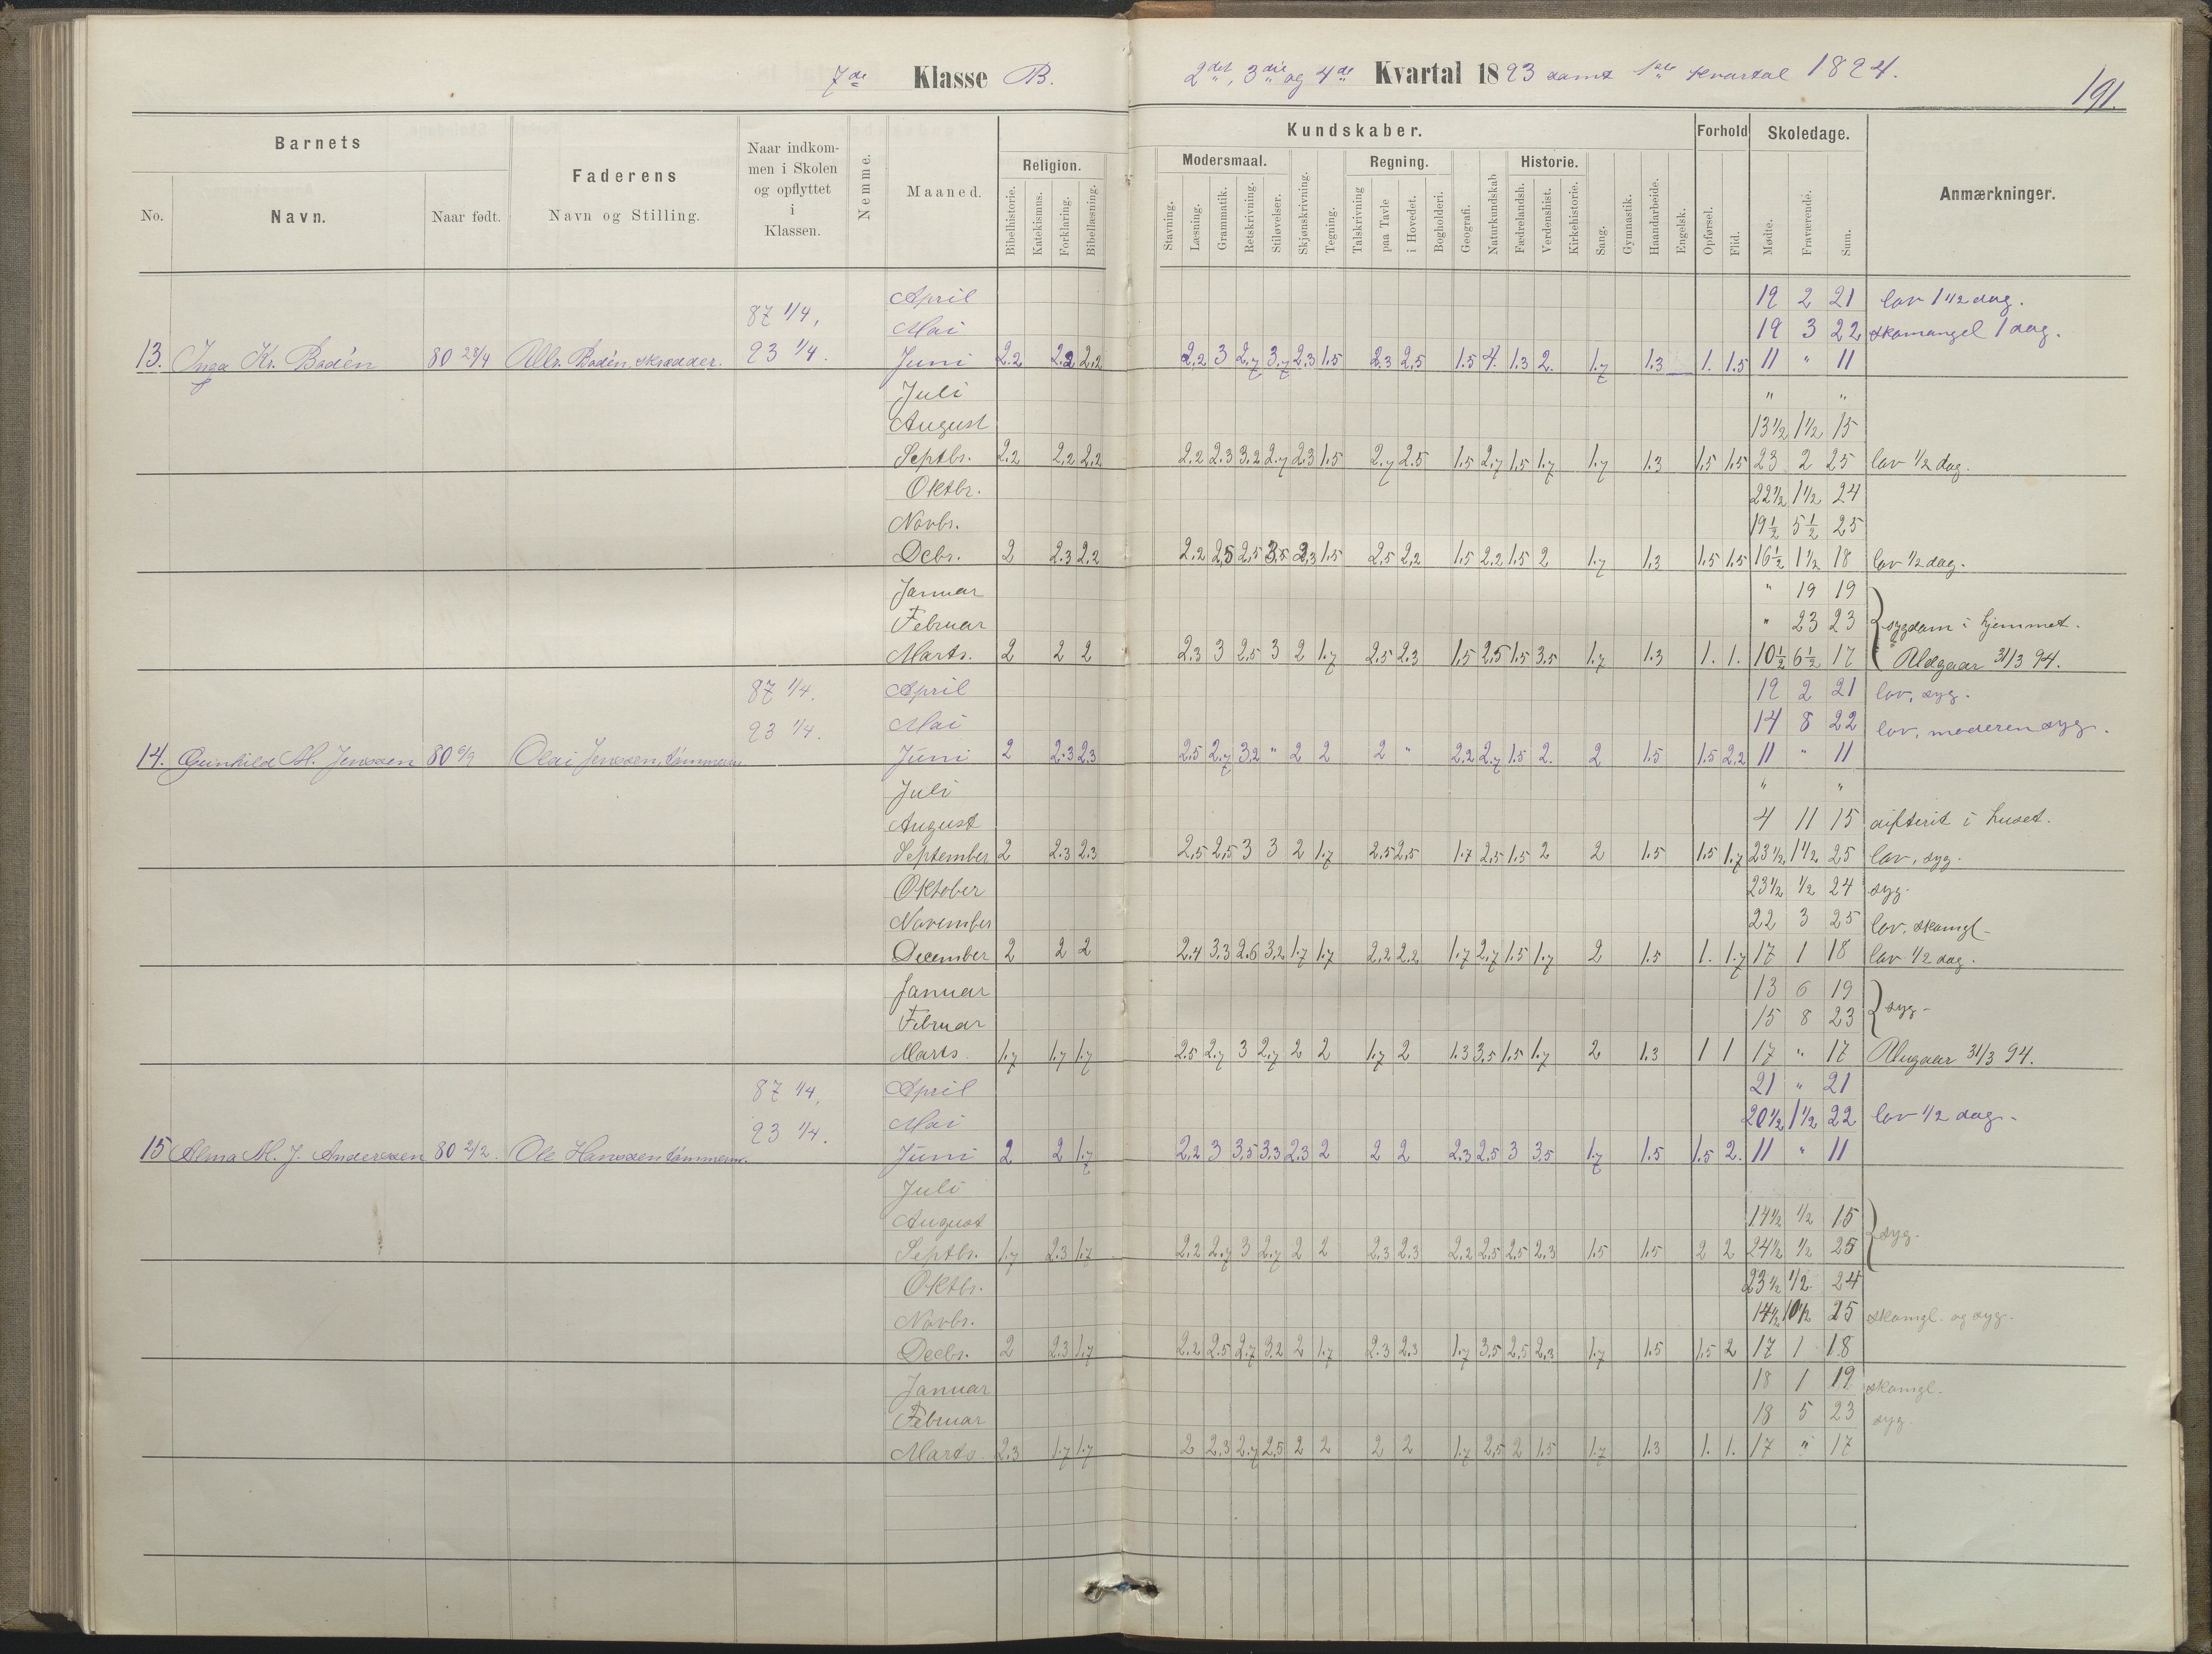 7de Klasse B. 2det, 3die og 4de Kvartal 1893 samt 1ste Kvartal 1894.
191.
Barnets
No. Navn. Naar født.
Faderens
Navn og Stilling.
Naar indkom-
men i Skolen
og opflyttet
i
Klassen.
Nemme.
Maaned.
Kundskaber.
Religion.
Bibelhistorie. Katekismus. Forklaring. Bibellæsning.
Modersmaal.
Stavning. Læsning. Grammatik. Retskrivning. Stiløvelser. Skjønskrivning. Tegning.
Regning.
Talskrivning paa Tavle i Hovedet. Bogholderi.
Geografi. Naturkundskab
Historie.
Fædrelandsh. Verdenshist. Kirkehistorie.
Sang. Gymnastik. Haandarbeide. Engelsk.
Forhold
Opførsel. Flid.
Skoledage.
Mødte. Fraværende. Sum.
Anmærkninger.
April 19 2 21 lov 1 1/2 dag.
87 1/4, Mai 19 3 22 skomangel 1 dag.
13. Inga Kr. Bodén 80 28/4 Albr. Bodén, skrædder. 93 1/4. Juni 2.2 2.2 2.2 2.2 3 2.7 3.7 2.3 1.5 2.3 2.5 1.5 4. 1.3 2. 1.7 1.3 1. 1.5 11 " 11
Juli " "
August 13 1/2 1 1/2 15
Septbr. 2.2 2.2 2.2 2.2 2.3 3.2 2.7 2.3 1.5 2.7 2.5 1.5 2.7 1.5 1.7 1.7 1.3 1.5 1.5 23 2 25 lov 1/2 dag.
Oktbr. 22 1/2 1 1/2 24
Novbr. 19 1/2 5 1/2 25
Debr. 2 2.3 2.2 2.2 2.5 2.5 3.5 2.3 1.5 2.5 2.2 1.5 2.2 1.5 2 1.7 1.3 1.5 1.5 16 1/2 1 1/2 18 lov 1/2 dag.
Januar " 19 19
Februar " 23 23 sygdom i hjemmet.
Marts. 2 2 2 2.3 3 2.5 3 2 1.7 2.5 2.3 1.5 2.5 1.5 3.5 1.7 1.3 1. 1. 10 1/2 6 1/2 17 Udgaar 31/3 94.
87 1/4. April 19 2 21 lov, syg.
93 1/4. Mai 14 8 22 lov, moderen syg.
14. Gunhild M. Jenssen 80 6/9 Olai Jenssen, tømmerm. Juni 2 2.3 2.3 2.5 2.7 3.2 " 2 2 2 " 2.2 2.7 1.5 2. 2 1.5 1.5 2.2 11 " 11
Juli " "
August 4 11 15 difterit i huset.
September 2 2.3 2.3 2.5 2.5 3 3 2 1.7 2.5 2.5 1.7 2.5 1.5 2 2 1.5 1.5 1.7 23 1/2 1 1/2 25 lov, syg.
Oktober 23 1/2 1/2 24 syg.
November 22 3 25 lov, skomgl.
December 2 2 2 2.4 3.3 2.6 3.2 1.7 1.7 2.2 2.2 1.7 2.7 1.5 1.7 2 1.5 1. 1.7 17 1 18 lov 1/2 dag.
Januar 13 6 19
Februar 15 8 23 syg.
Marts. 1.7 1.7 1.7 2.5 2.7 3 2.7 2 2 1.7 2 1.3 3.5 1.5 1.7 2 1.3 1 1 17 " 17 Udgaar 31/3 94.
87 1/4, April 21 " 21
93 1/4. Mai 20 1/2 1 1/2 22 lov 1/2 dag.
15 Alma M. J. Anderssen 80 2/2. Ole Hanssen tømmerm. Juni 2 2 1.7 2.2 3 3.5 3.3 2.3 2 2 2 2.3 2.5 3 3.5 1.7 1.5 1.5 2. 11 " 11
Juli
August 14 1/2 1/2 15
Septbr. 1.7 2.3 1.7 2.2 2.7 3 2.7 2 2 2.3 2.3 2.2 2.5 2.5 2.3 1.5 1.5 2 2 24 1/2 1/2 25 syg.
Oktbr. 23 1/2 1/2 24
Novbr. 14 1/2 10 1/2 25 skomgl. og syg.
Decbr. 2 2.3 1.7 2.2 2.5 2.7 3.2 2 1.7 2.3 2.3 1.7 3.5 2.5 2.3 1.7 1.5 1.5 2 17 1 18
Januar 18 1 19 skomgl.
Februar 18 5 23 syg.
Marts. 2.3 1.7 1.7 2 2.3 2.7 2.5 2 2 2 2 1.7 2.5 2 1.5 1.7 1.3 1. 1. 17 " 17